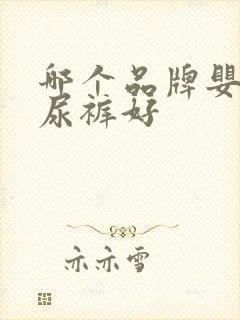 哪个品牌婴
尿裤好
亦亦雪